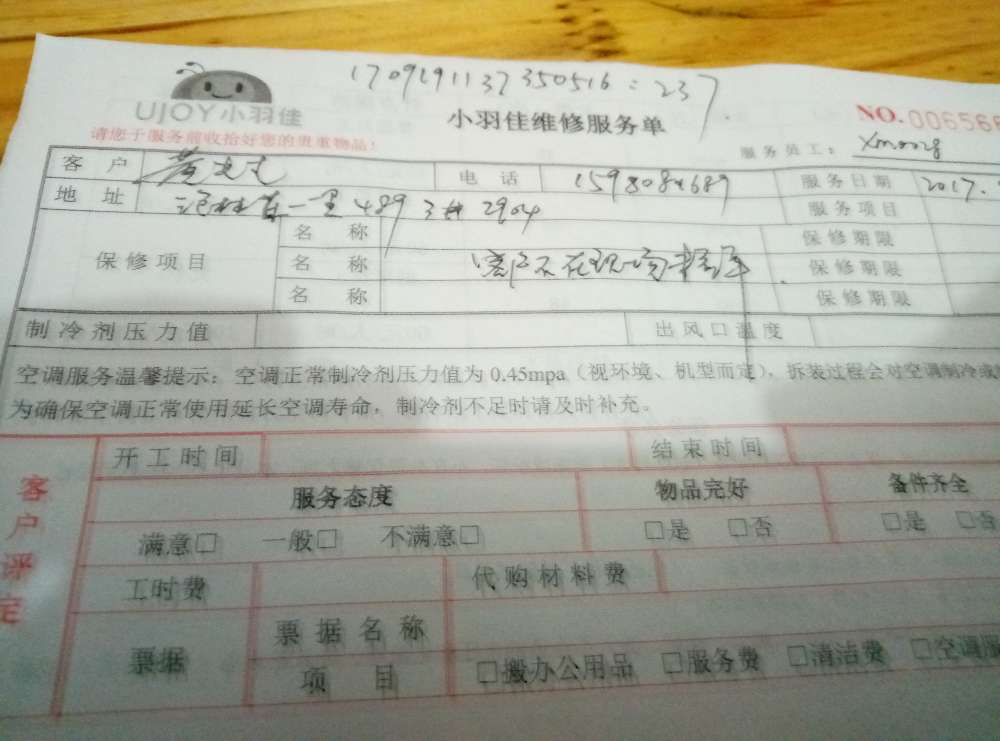 1709191137350516 = 237
UJOY小羽佳 小羽佳维修服务单 NO.00656
请您于服务前收拾好您的贵重物品! 服务员工: Xm0028
客户 黄 电话 服务日期 2017.
地址 一里489 2904 服务项目
保修项目
名称 保修期限
名称 客户不在现场 保修期限
名称 保修期限
制冷剂压力值 出风口温度
空调服务温馨提示:空调正常制冷剂压力值为0.45mpa(视环境、机型而定),拆装过程会对空调制冷或
为确保空调正常使用延长空调寿命,制冷剂不足时请及时补充。
客户评定
开工时间 结束时间
服务态度 物品完好 备件齐全
满意□ 一般□ 不满意□ □是 □否 □是 □否
工时费 代购材料费
票据 票据名称
项目 □搬办公用品 □服务费 □清洁费 □空调